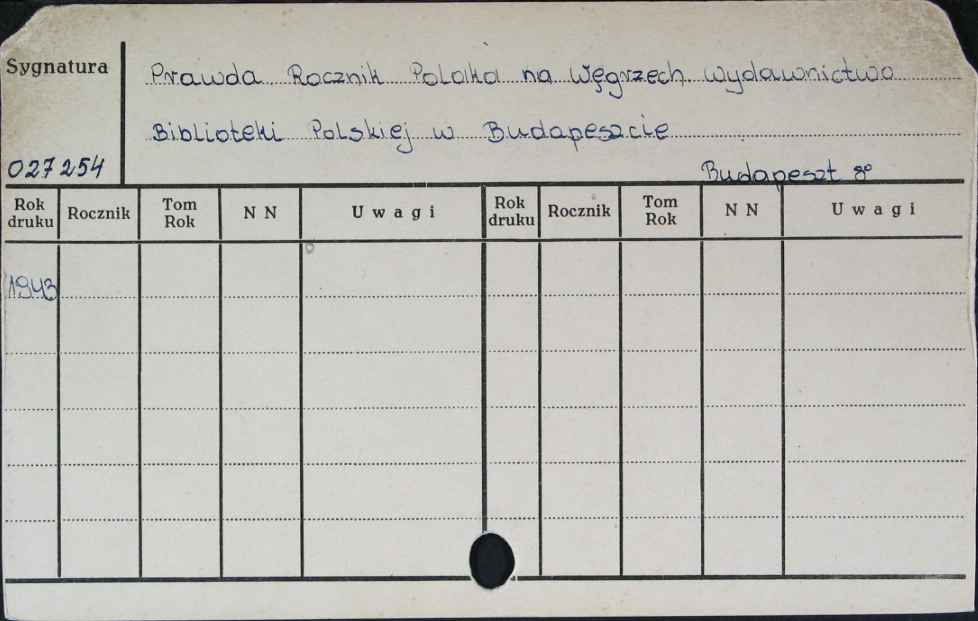 Sygnatura
Prawda Rocznik Polaka na Węgrzech wydawnictwo
Biblioteki Polskiej w Budapeszcie
027254
Budapeszt 8°
Rok druku Rocznik Tom Rok N N Uwagi Rok druku Rocznik Tom Rok N N Uwagi
1943